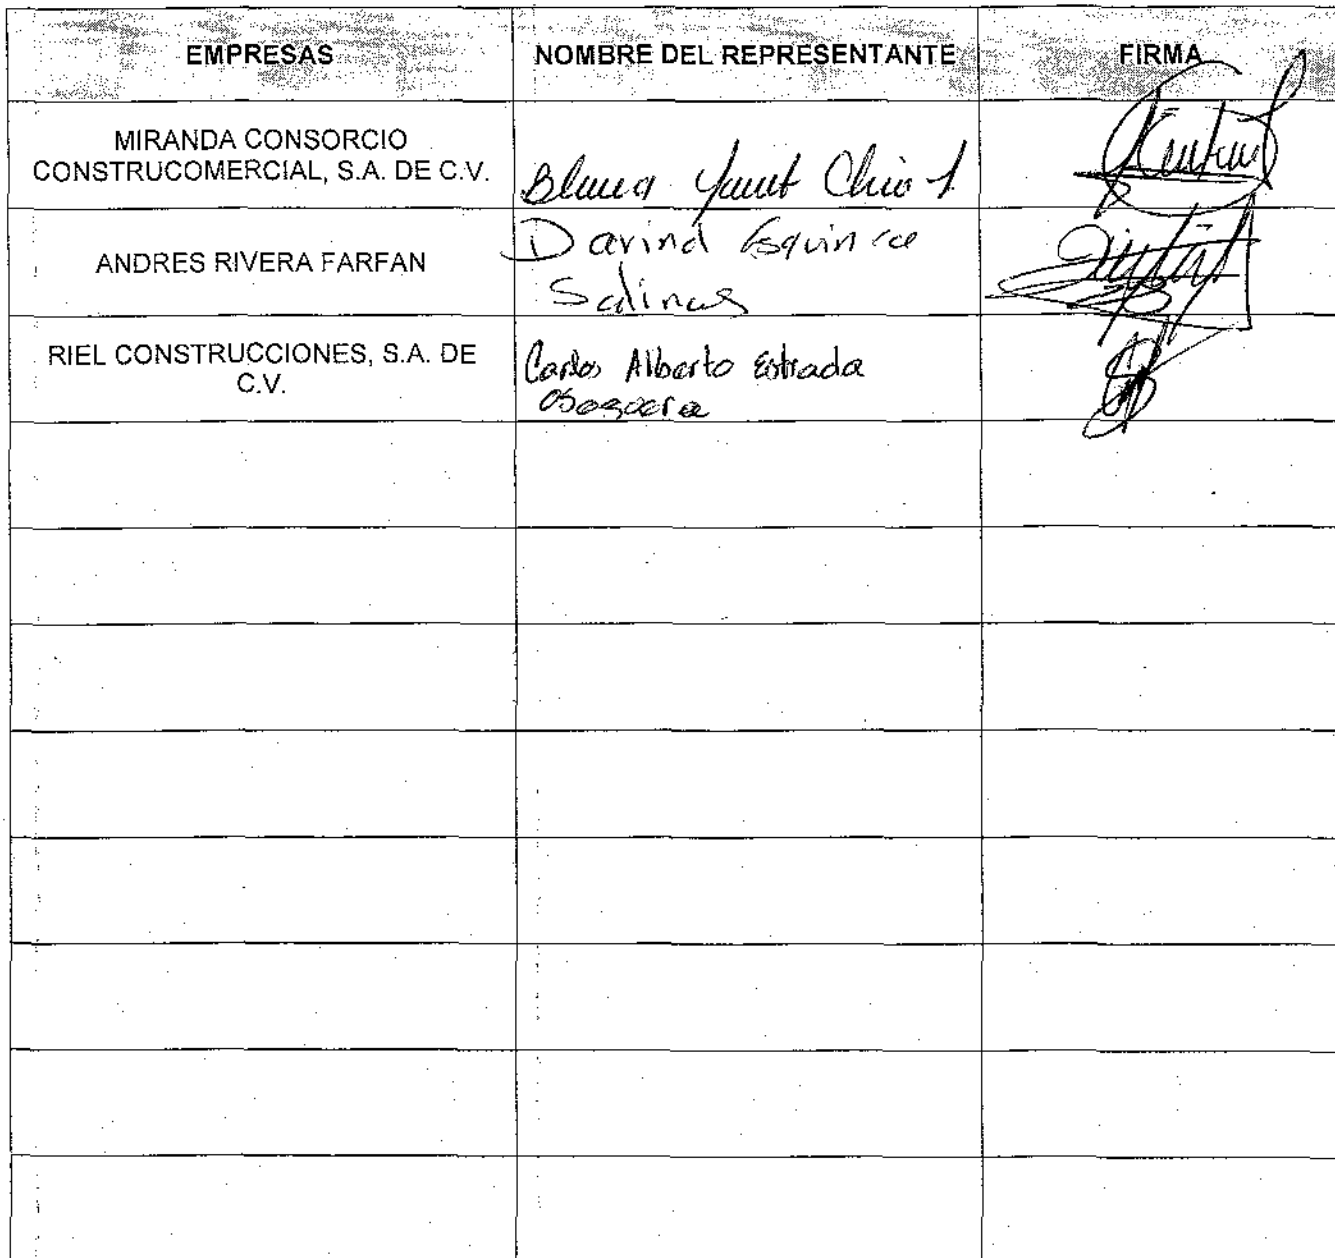 EMPRESAS NOMBRE DEL REPRESENTANTE FIRMA
MIRANDA CONSORCIO
CONSTRUCOMERCIAL, S.A. DE C.V.
Blanca Yanet Chio
ANDRES RIVERA FARFAN
Darind Esquinca
Salinas
RIEL CONSTRUCCIONES, S.A. DE
C.V.
Carlos Alberto Estrada